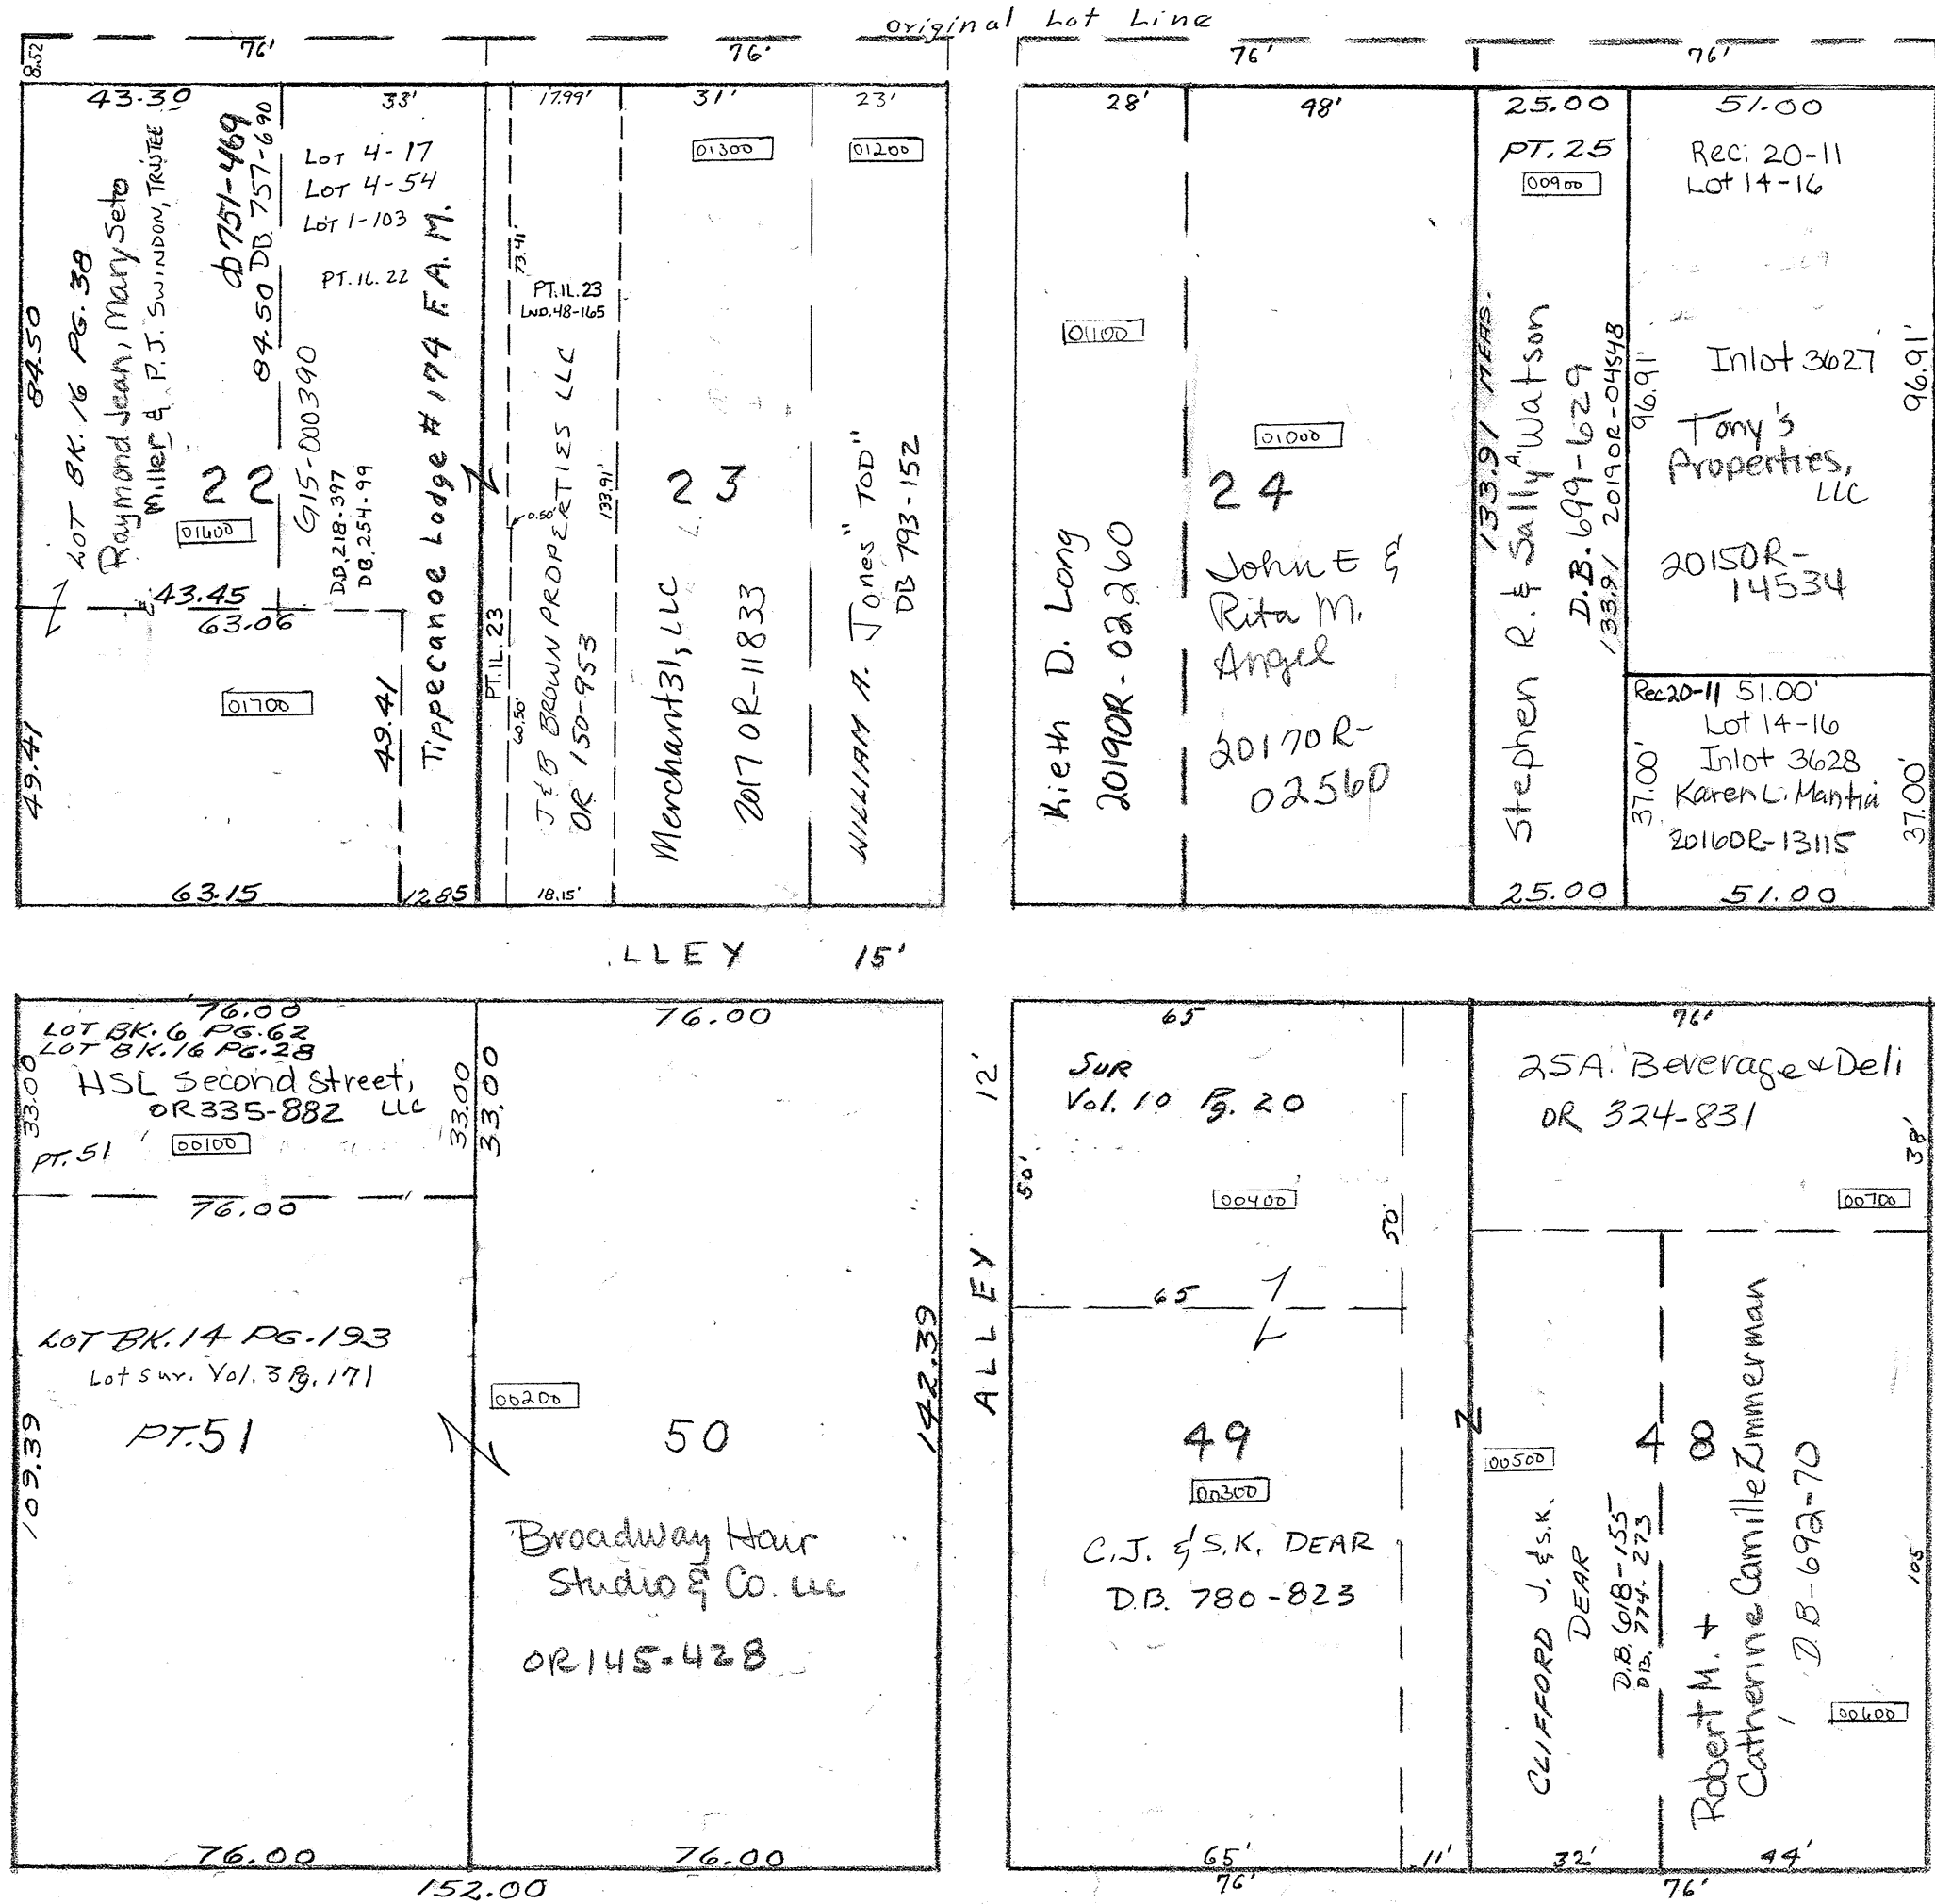 Original Lot Line
8.52
76'
76'
76'
76'
43.30
33'
17.99'
31'
23'
84.50
LOT BK. 16 PG. 38
Raymond Jean, Mary Seto
Miller & P.J. SWINDON, TRUSTEE
db 751-469
84.50 DB. 757-690
22
01600
43.45
63.06
LOT 4-17
LOT 4-54
LOT 1-103
PT. IL. 22
G15-000390
DB. 218-397
DB. 254-99
Tippecanoe Lodge # 174 F. A. M.
49.41
01700
49.41
63.15
12.85
PT. IL. 23
73.41'
0.50'
60.50'
PT. IL. 23
LND. 48-165
J & B BROWN PROPERTIES LLC
OR 150-953
133.91'
18.15'
01300
23
Merchant31, LLC
2017OR-11833
01200
WILLIAM A. Jones "TOD"
DB 793-152
28'
48'
25.00
51.00
01100
Kieth D. Long
2019OR-02260
01000
24
John E &
Rita M.
Angel
2017OR-
02560
PT. 25
00900
133.91 MEAS.
Stephen R. & Sally A. Watson
D.B. 699-629
133.91 2019OR-04548
25.00
Rec: 20-11
Lot 14-16
96.91'
Inlot 3627
96.91'
Tony's
Properties,
LLC
2015OR-
14534
Rec 20-11 51.00'
Lot 14-16
Inlot 3628
Karen L. Mantia
2016OR-13115
37.00'
37.00'
51.00
.LLEY 15'
76.00
LOT BK. 6 PG. 62
LOT BK. 16 PG. 28
HSL Second Street,
OR 335-882 LLC
33.00
33.00
33.00
PT. 51
00100
76.00
LOT BK. 14 PG. 193
Lot Sur. Vol. 3 Pg. 171
PT. 51
109.39
76.00
76.00
00200
50
142.39
Broadway Hair
Studio & Co. LLC
OR 145-428
76.00
152.00
ALLEY 12'
65
SUR
Vol. 10 Pg. 20
50'
00400
50'
65
49
00300
C.J. & S.K. DEAR
D.B. 780-823
65'
11'
76'
76'
25A. Beverage & Deli
OR 324-831
38'
00700
00500
48
CLIFFORD J. & S.K.
DEAR
D.B. 618-155
D.B. 774-273
Robert M. +
Catherine Camille Zimmerman
D.B-692-70
105'
00600
32'
44'
76'